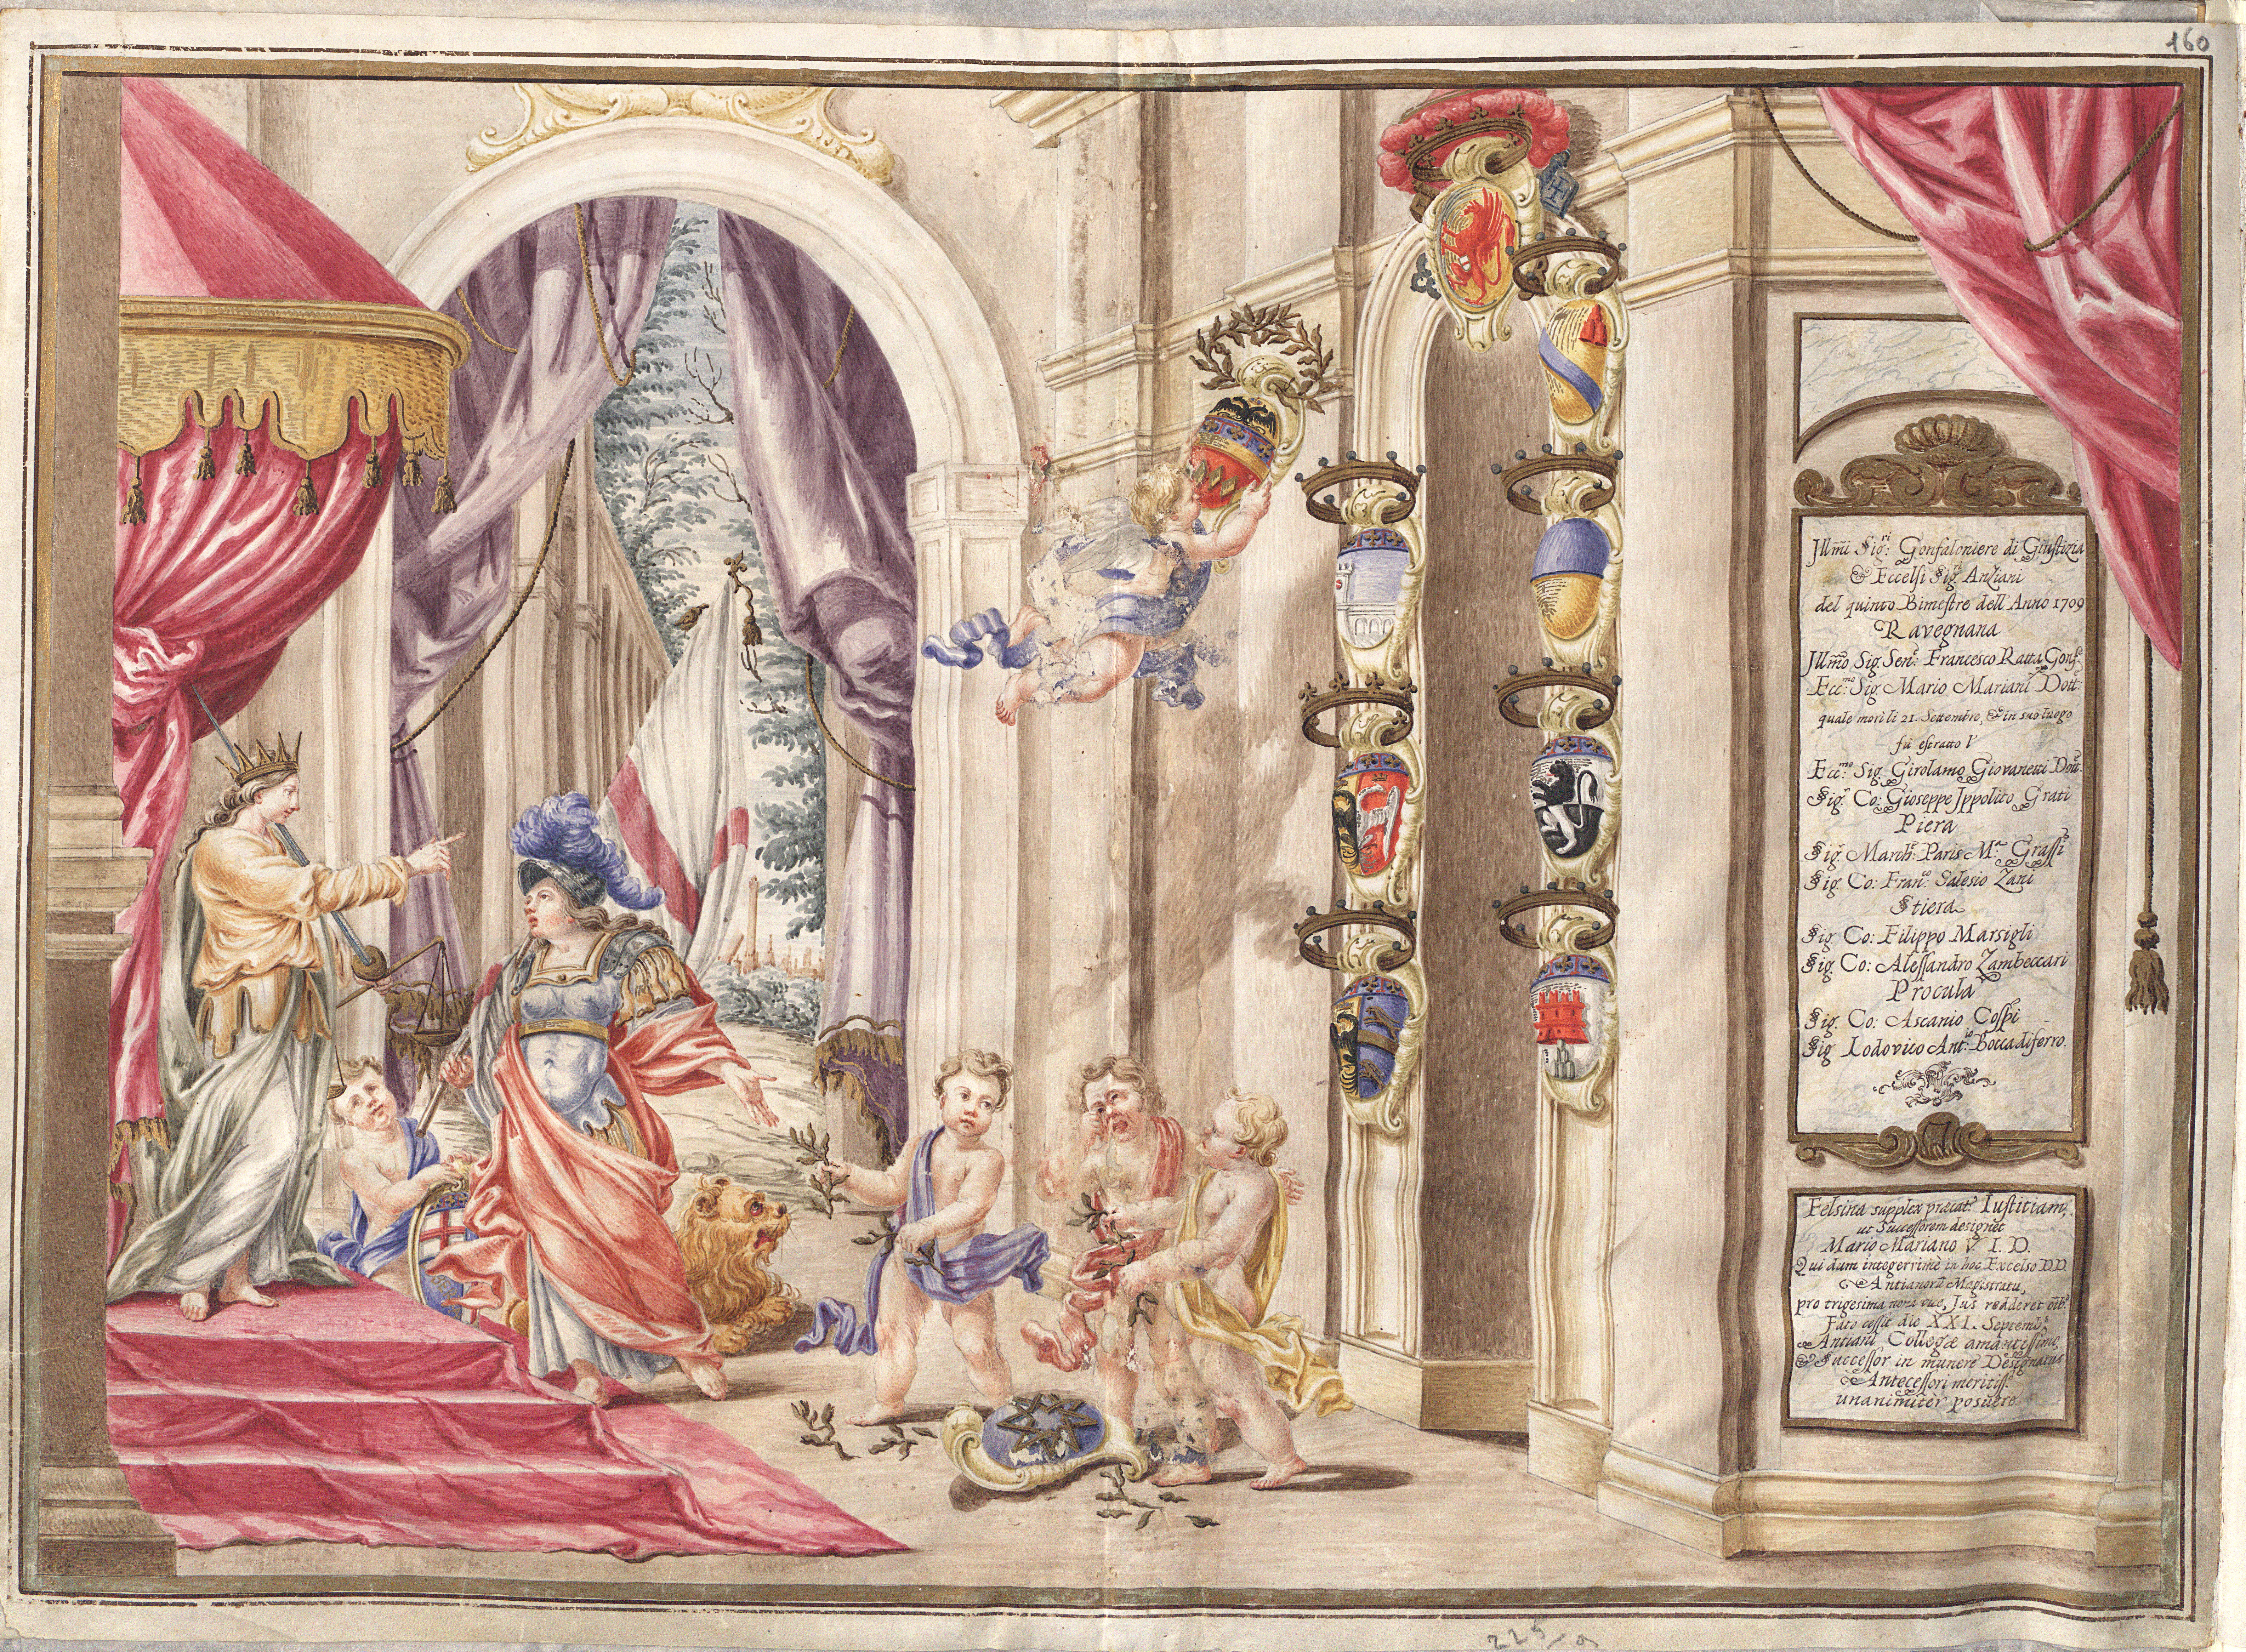 160
Jllmi Sig:ri Gonfaloniere di Giustizia
& Eccelsi Sig.ri Anziani
del quinto Bimestre dell' Anno 1709
Ravegnana
Jllmo Sig. Sen:r Francesco Ratta Gonf:e
Ecc:mo Sig. Mario Mariani Dott:
quale morì li 21. Settembre, & in suo luogo
fù estratto l'
Ecc:mo Sig. Girolamo Giovanetti Dott:
Sig.r Co: Gioseppe Jppolito Grati
Piera
Sig.r March: Paris M.a Grassi
Sig. Co: Fran:co Salesio Zani
Stiera
Sig. Co: Filippo Marsigli
Sig. Co: Alessandro Zambeccari
Procula
Sig. Co: Ascanio Cospi
Sig. Lodovico Ant:io Boccadiferro.
Felsina supplex precat.r Iustitiam,
ut Successorem designet
Mario Mariano V. I. D.
Qui dum integerrimè in hoc Excelso DD.
Antianorū Magistratu,
pro trigesima nona vice, Jus redderet
Fato cessit die XXI. Septemb.
Antiani Collegæ amantissimo,
& Successor in munere Designatus
Antecessori meritiss.o
unanimiter posuere.
225/a